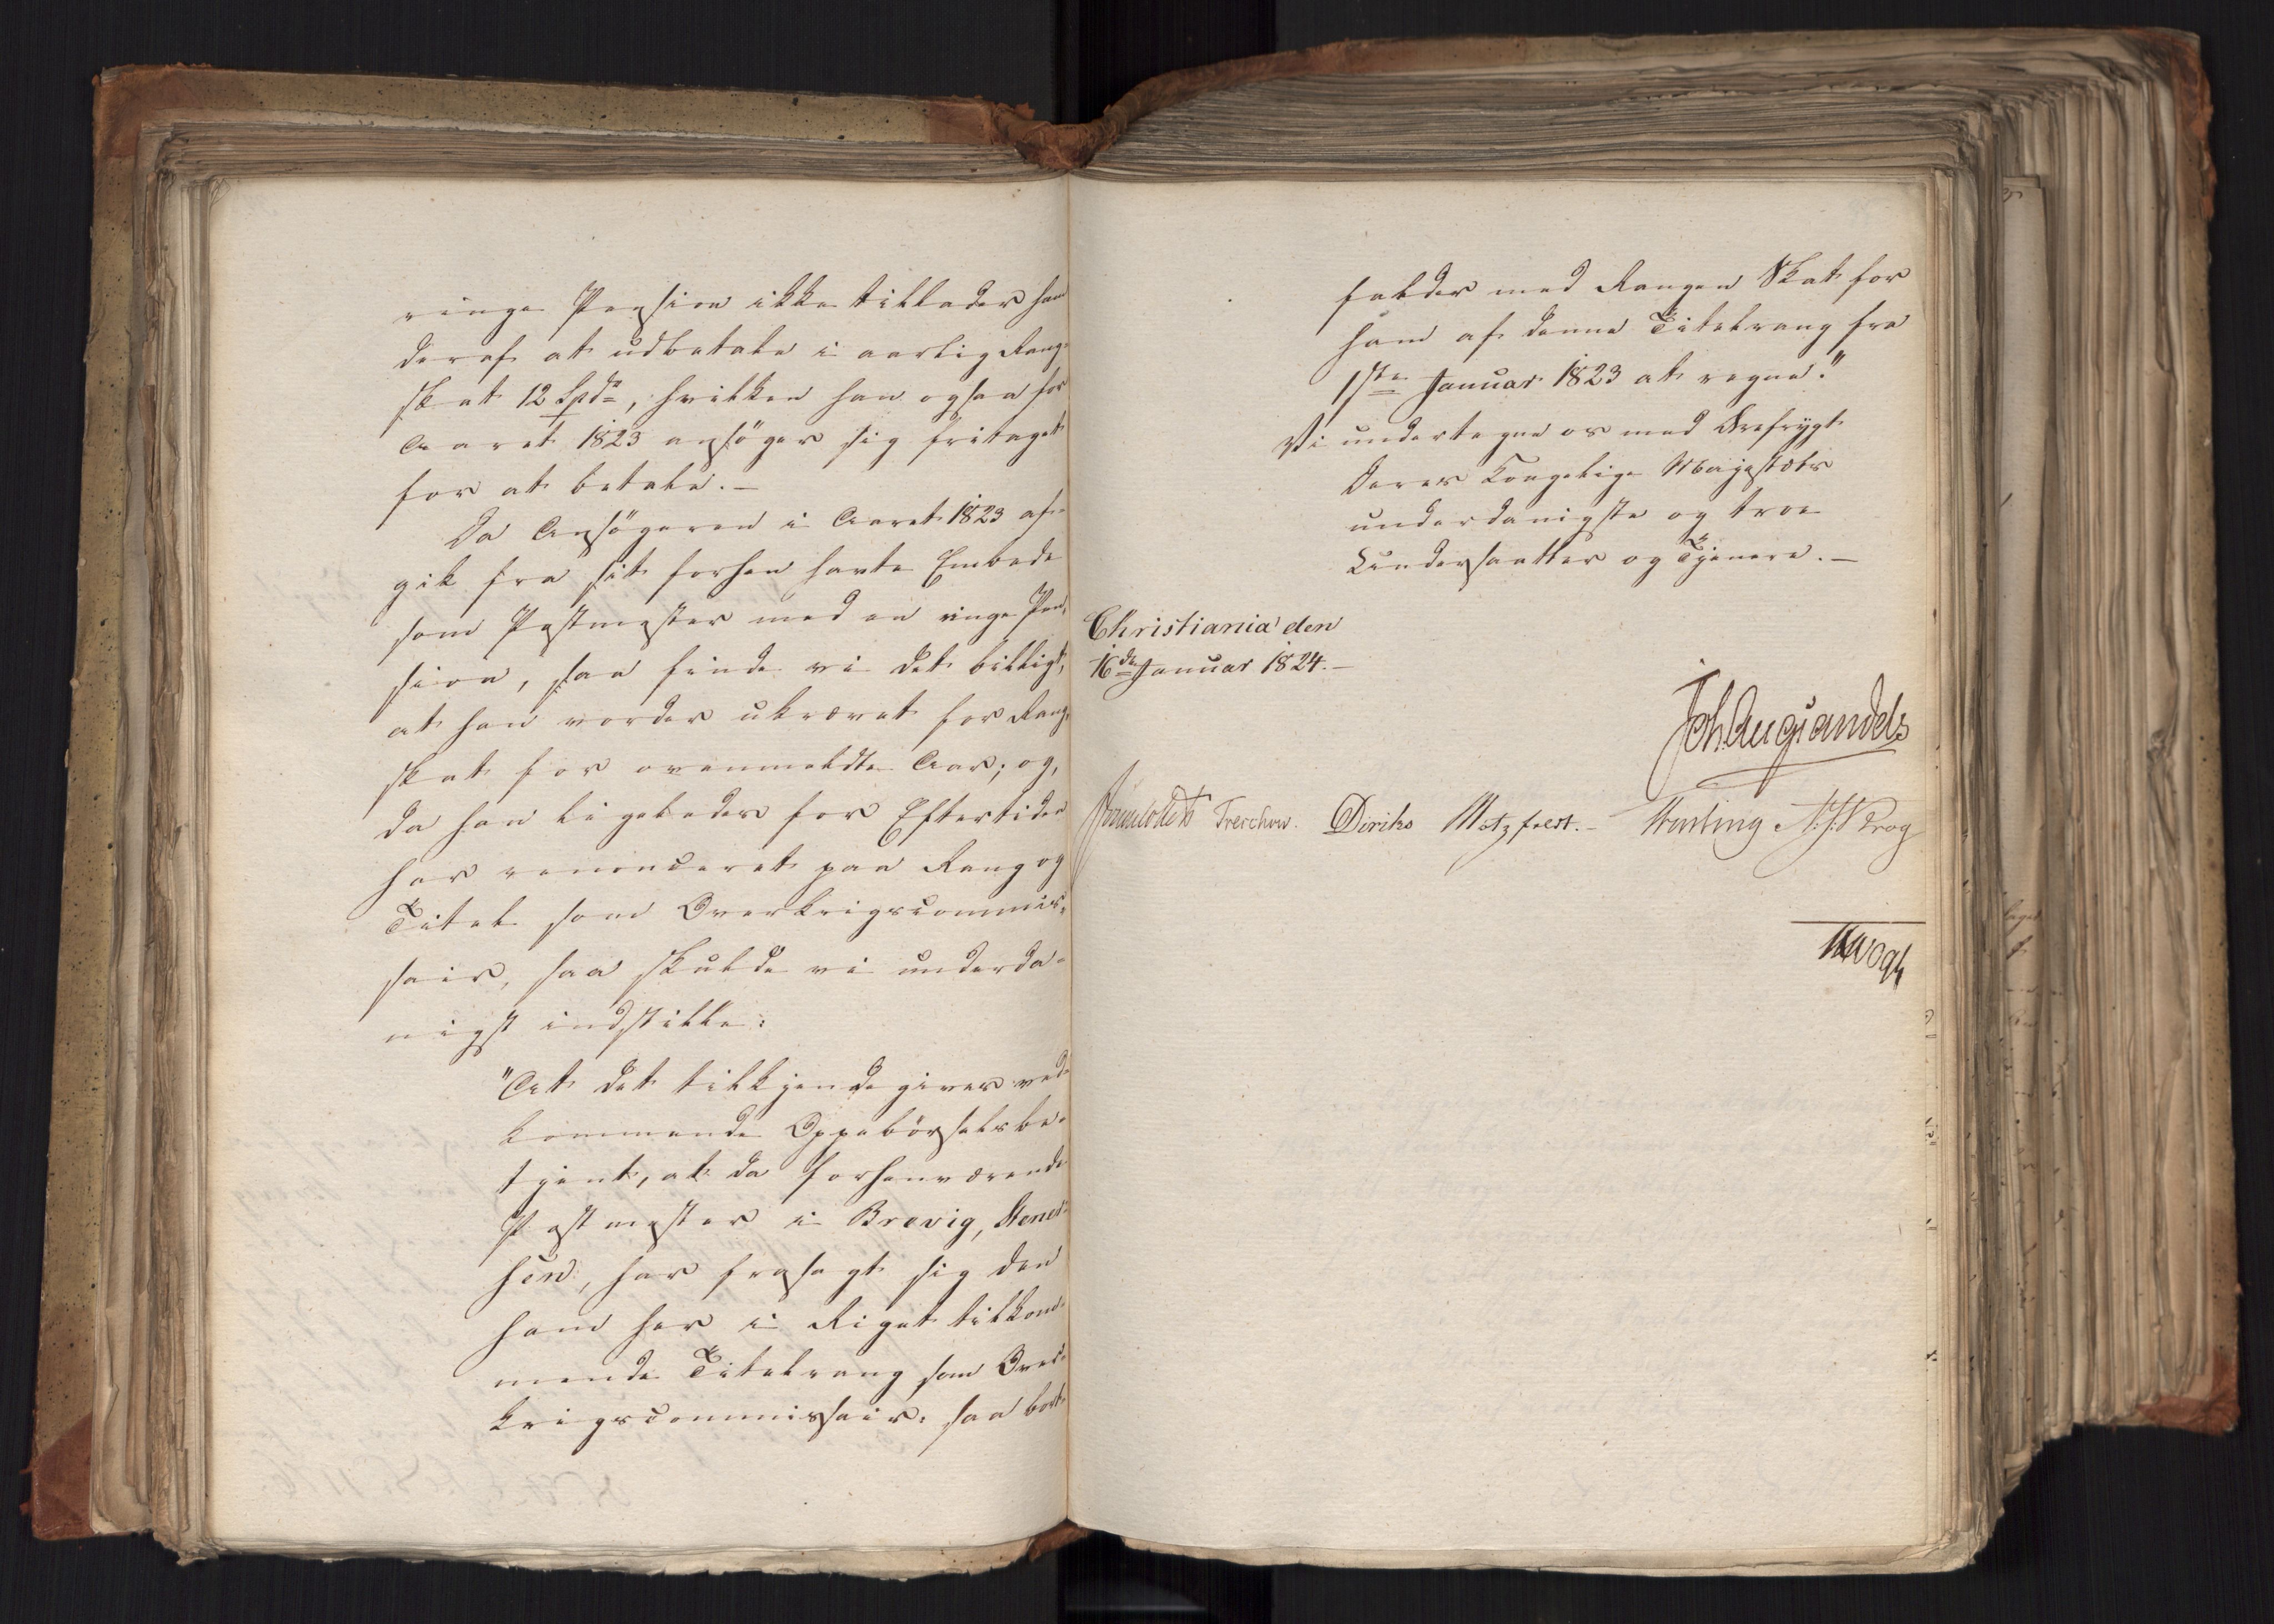 ringe Pension ikke tillader ham
deraf at udbetale i aarlig Rang-
skat 12 Spdr, hvilken han ogsaa for
Aaret 1823 ansøger sig fritaget
for at betale.—
Da Ansøgeren i Aaret 1823 af-
gik fra sit forhen havte Embede
som Postmester med en ringe Pen-
sion, saa finde vi det billigt,
at han vorder ukrævet for Rang-
skat for ovenmeldte Aar; og,
da han ligeledes for Eftertiden
har renonceret paa Rang og
Titel som Overkrigscommis-
sair, saa skulde vi underda-
nigst indstille:
"At det tilkjendegives ved-
kommende Oppebørselsbe-
tjent, at da forhenværende
Postmester i Brevig, Stener-
sen, har frasagt sig den
ham her i Riget tilkom-
mende Titelrang som Over-
krigscommissair: saa bort-
falder med Rangen Skat for
ham af denne Titelrang fra
1ste Januar 1823 at regne."
Vi undertegne os med Ærefrygt
Deres Kongelige Majestæts
underdanigste og troe
Undersaatter og Tjenere.—
Christiania den
16de Januar 1824.—
Joh. Aug. Sandels
Sommerhielm Treschow. Diriks Motzfeldt.— Fasting N: J: Krog
Vogt